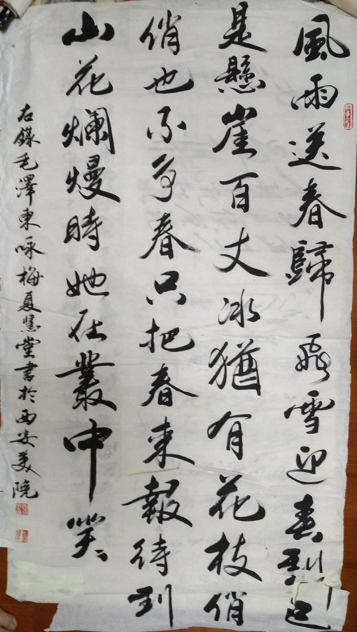 風雨送春歸飛雪迎春到已
是懸崖百丈冰猶有花枝俏
俏也不爭春只把春來報待到
山花爛熳時她在叢中笑
右錄毛澤東咏梅夏慧堂書於西安美院